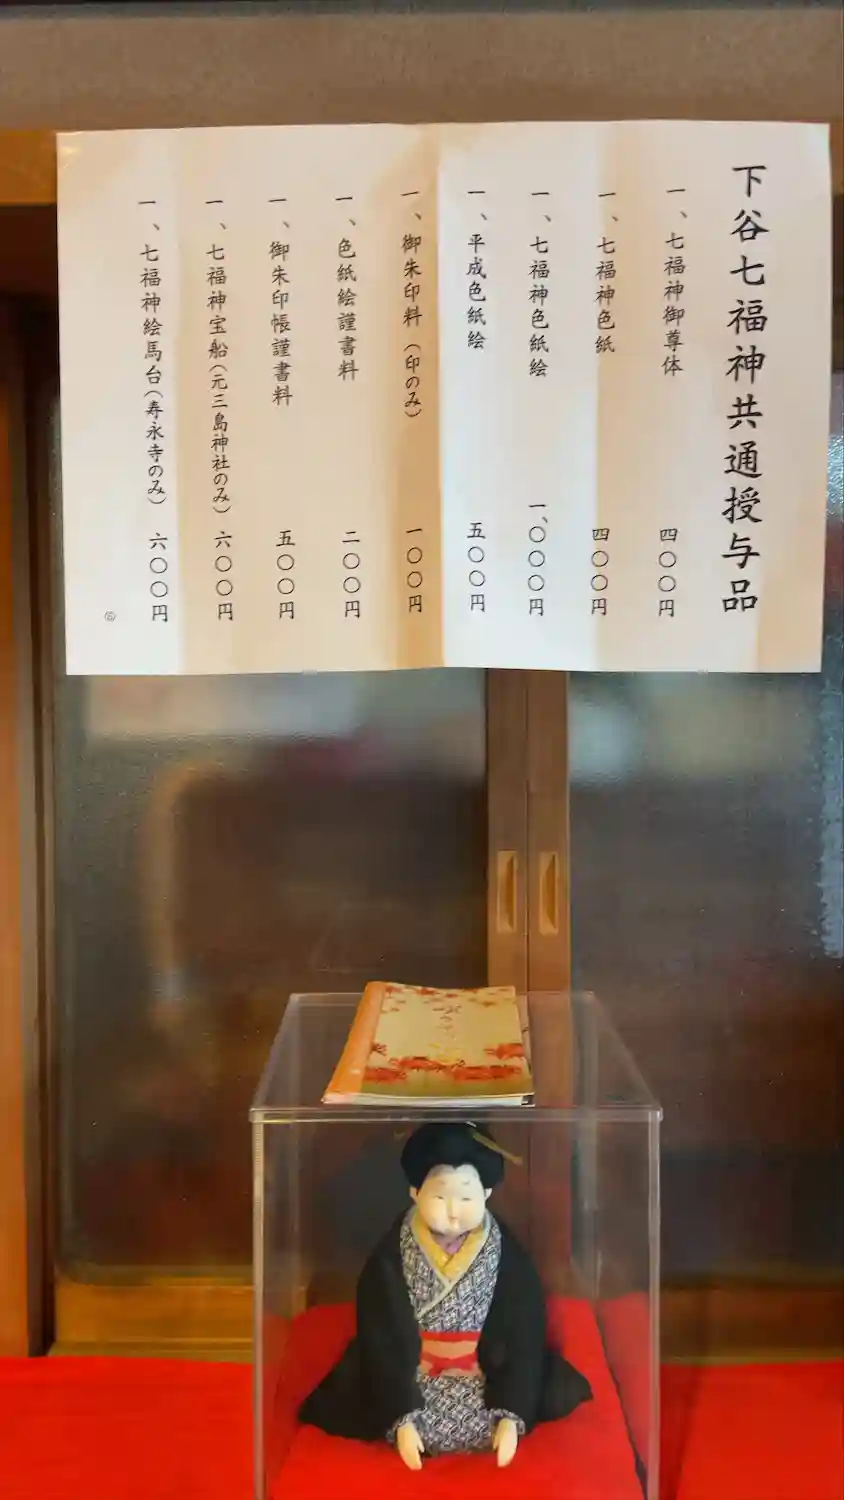 下谷七福神共通授与品
一、七福神御尊体 四〇〇円
一、七福神色紙 四〇〇円
一、七福神色紙絵 一、〇〇〇円
一、平成色紙絵 五〇〇円
一、御朱印料(印のみ) 一〇〇円
一、色紙絵謹書料 二〇〇円
一、御朱印帳謹書料 五〇〇円
一、七福神宝船(元三島神社のみ) 六〇〇円
一、七福神絵馬台(寿永寺のみ) 六〇〇円